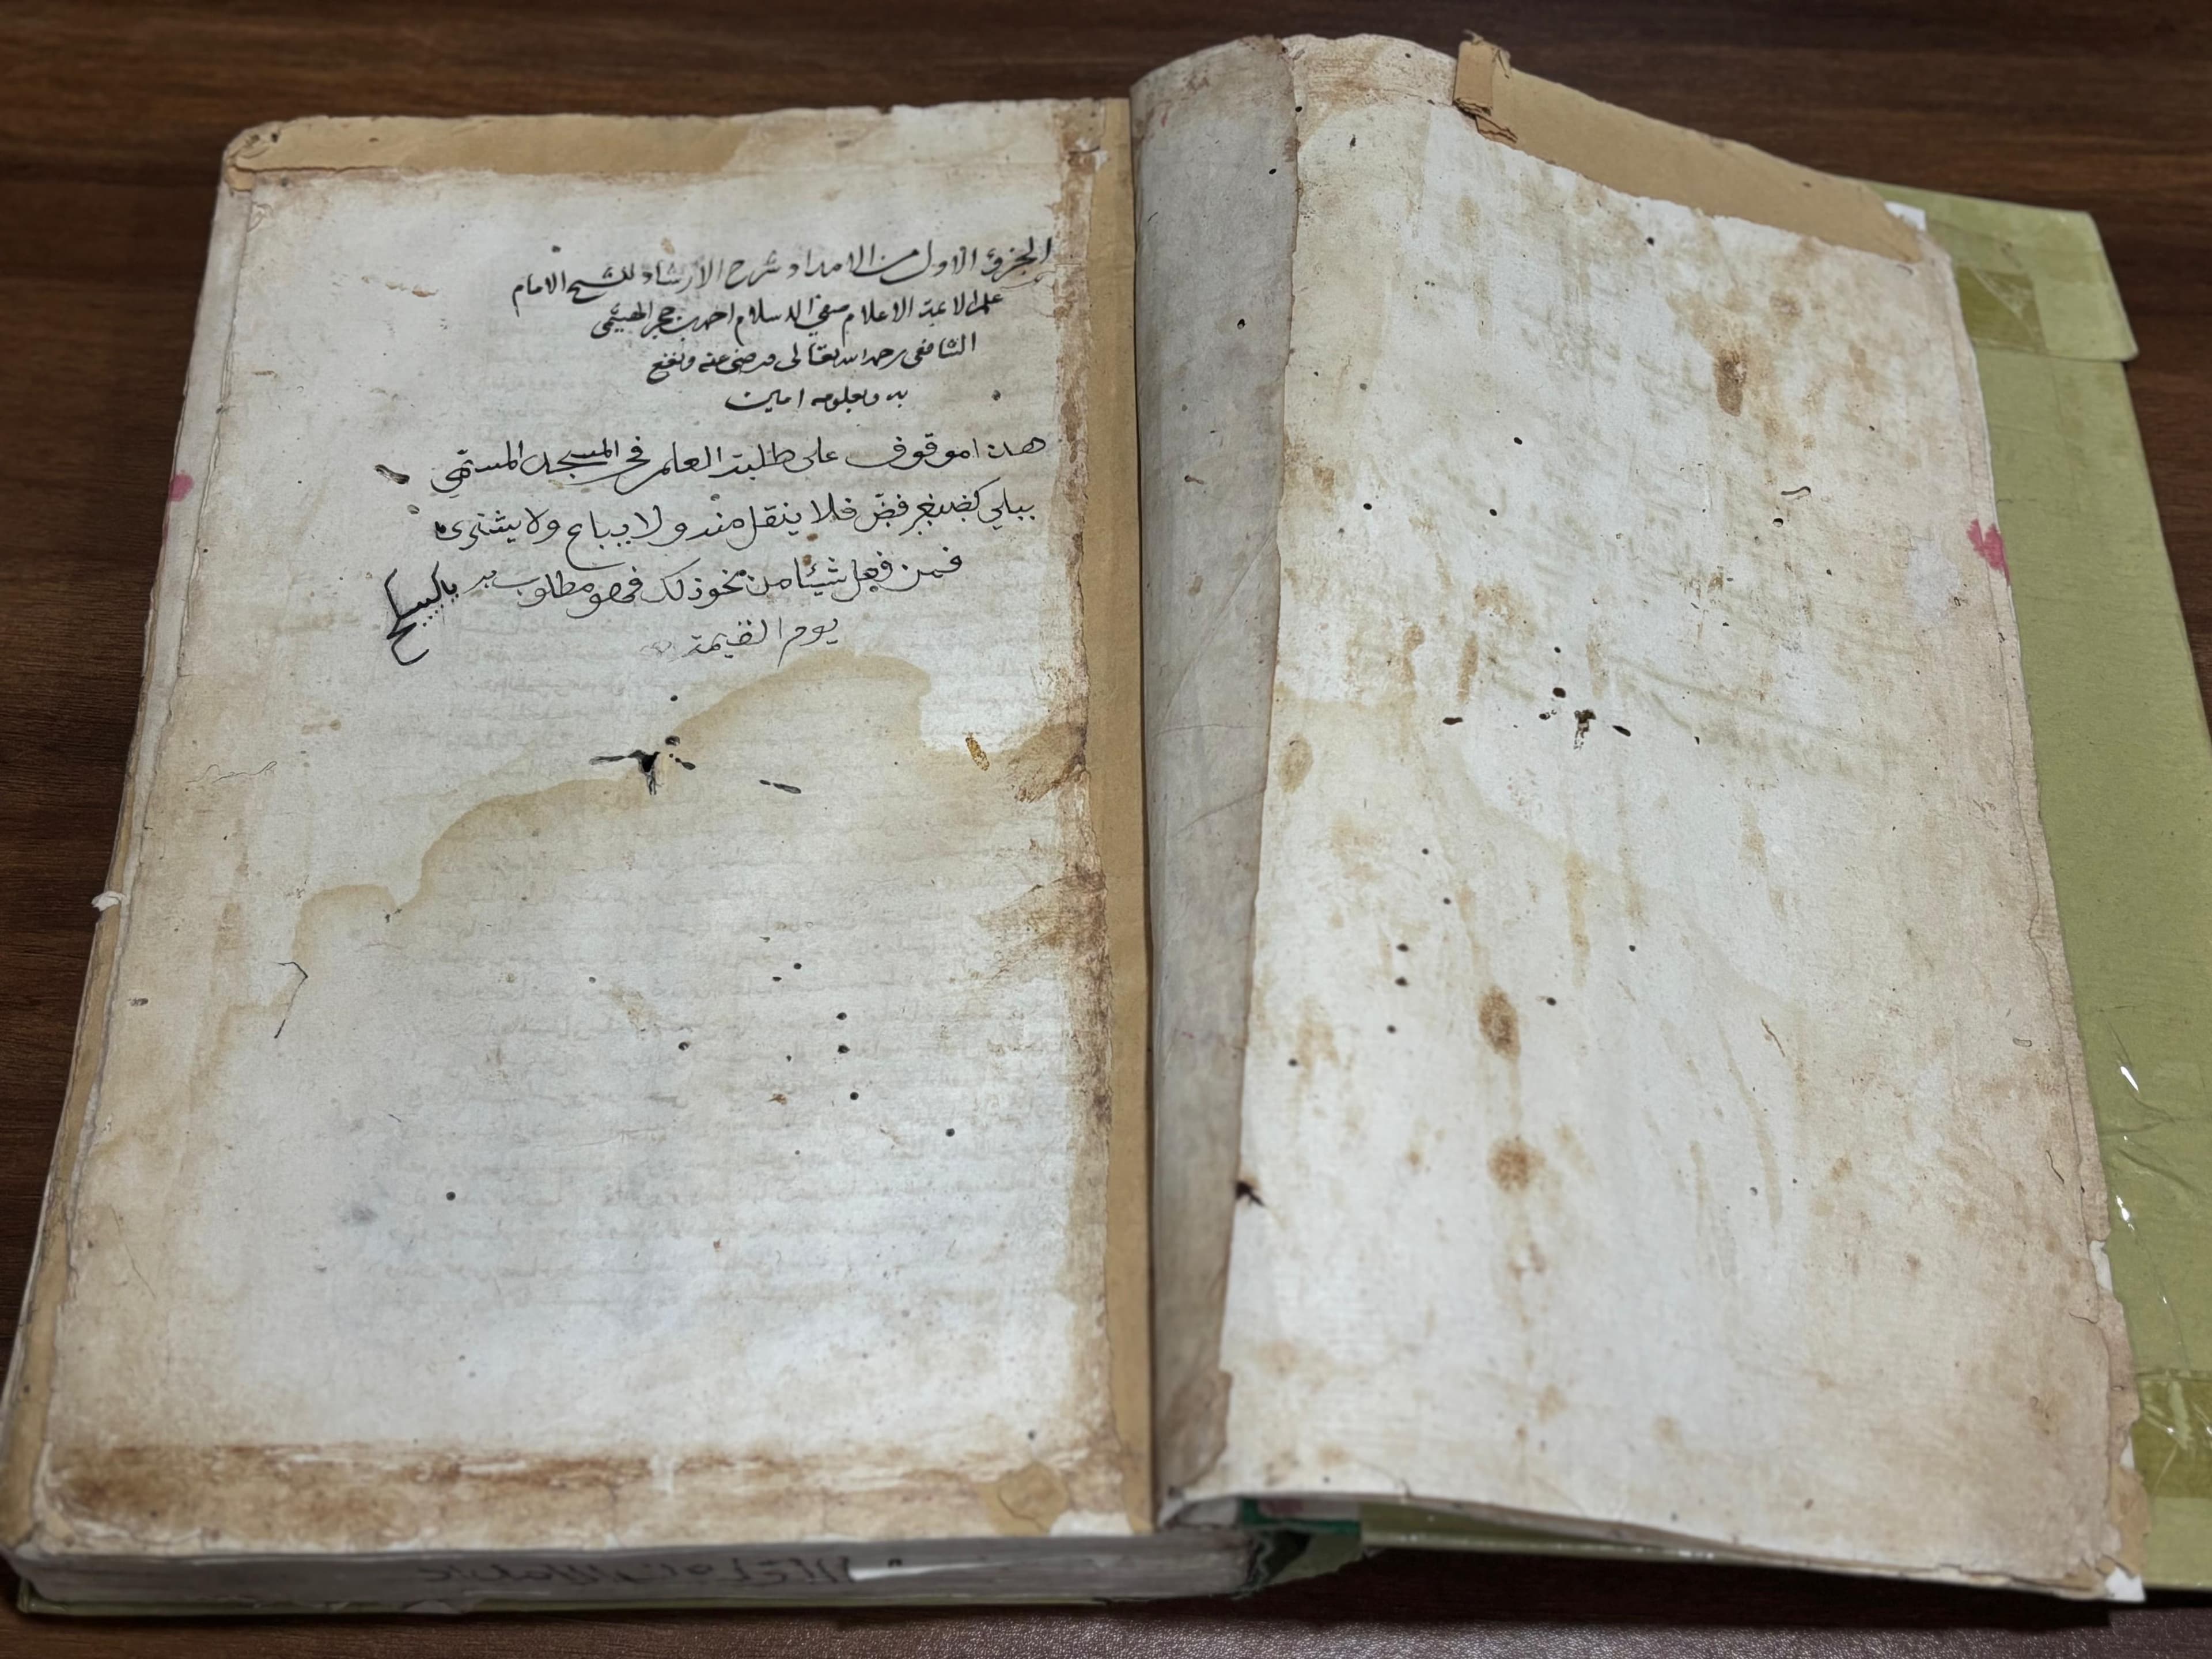 الجزؤ الاول من الامداد شرح الارشاد للشيخ الامام
علم الائمة الاعلام صفي الاسلام احمد بن حجر الهيتمي
الشافعي رحمه الله تعالى ورضي عنه ونفع
به وبعلومه امين
هذا موقوف على طلبة العلم في المسجد المستهى
ببلي فلا ينقل منه ولا يباع ولا يشترى
فمن فعل شيئا من نحو ذلك فهو مطلوب به
يوم القيمة